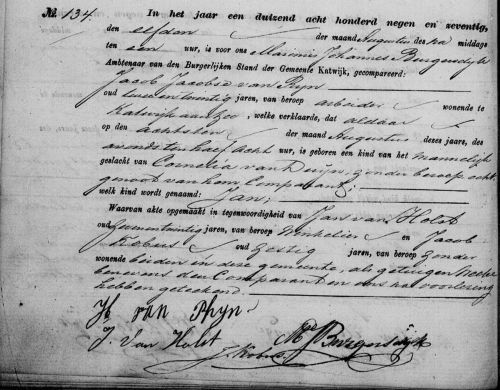 No. 134. In het jaar een duizend acht honderd negen en zeventig,
den elfden der maand Augustus des na middags
ten een ure, is voor ons Marinus Johannes Burgersdijk
Ambtenaar van den Burgerlijken Stand der Gemeente Katwijk, gecompareerd:
Jacob Jacobse van Rijn
oud twee en twintig jaren, van beroep arbeider wonende te
Katwijk aan Zee, welke verklaarde, dat aldaar
op den achtsten der maand Augustus dezes jaars, des
avonds ten half acht ure, is geboren een kind van het mannelijk
geslacht van Cornelia van Duijn, zonder beroep, echt-
genoot van hem Comparant;
welk kind wordt genaamd: Jan;
Waarvan akte opgemaakt in tegenwoordigheid van Jan van Holst
oud twintig jaren, van beroep Winkelier en Jacob
Kobus oud zestig jaren, van beroep zonder
wonende beiden in deze gemeente, als getuigen welke
benevens den Comparant en ons na voorlezing
hebben geteekend.
Jb van Rhyn
J. van Holst
J. Kobus MJ Burgersdijk